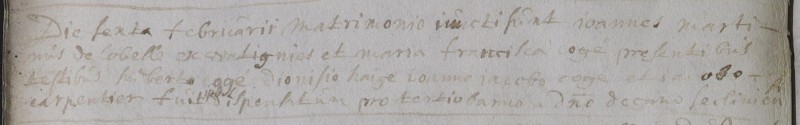 Die sexta februarii matrimonio iuncti sunt ioannes marti-
nus de lobelle ex watignies et maria francisca cogé presentibus
testibus huberto cogé dionisio haize ioanne iacobo cogé et iacobo
carpentier fuit dispensatum pro tertio banno a dno decano seclinien